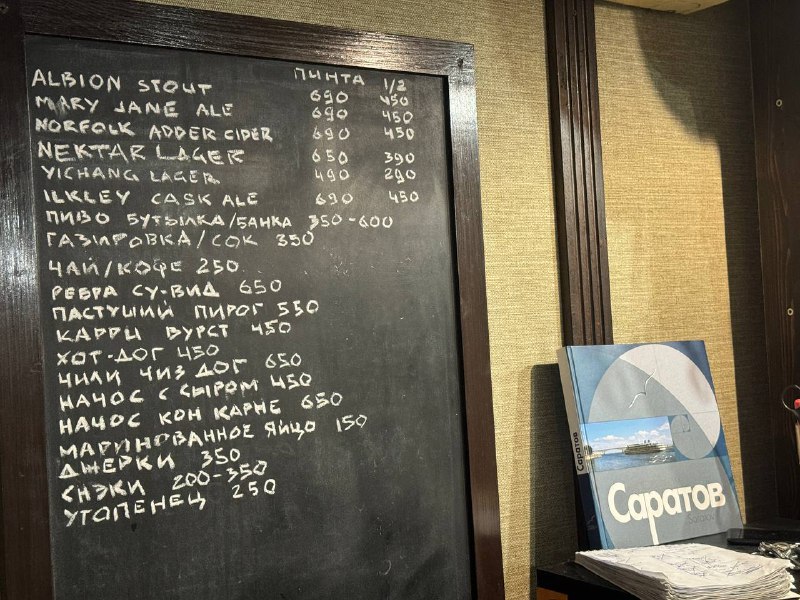 ПИНТА 1/2
ALBION STOUT 690 450
MARY JANE ALE 690 450
NORFOLK ADDER CIDER 690 450
NEKTAR LAGER 650 390
YICHANG LAGER 490 290
ILKLEY CASK ALE 690 450
ПИВО БУТЫЛКА/БАНКА 350-600
ГАЗИРОВКА/СОК 350
ЧАЙ/КОФЕ 250
РЕБРА СУ-ВИД 650
ПАСТУШИЙ ПИРОГ 550
КАРРИ ВУРСТ 450
ХОТ-ДОГ 450
ЧИЛИ ЧИЗ ДОГ 650
НАЧОС С СЫРОМ 450
НАЧОС КОН КАРНЕ 650
МАРИНОВАННОЕ ЯЙЦО 150
ДЖЕРКИ 350
СНЭКИ 200-350
УТОПЕНЕЦ 250
Саратов
Саратов